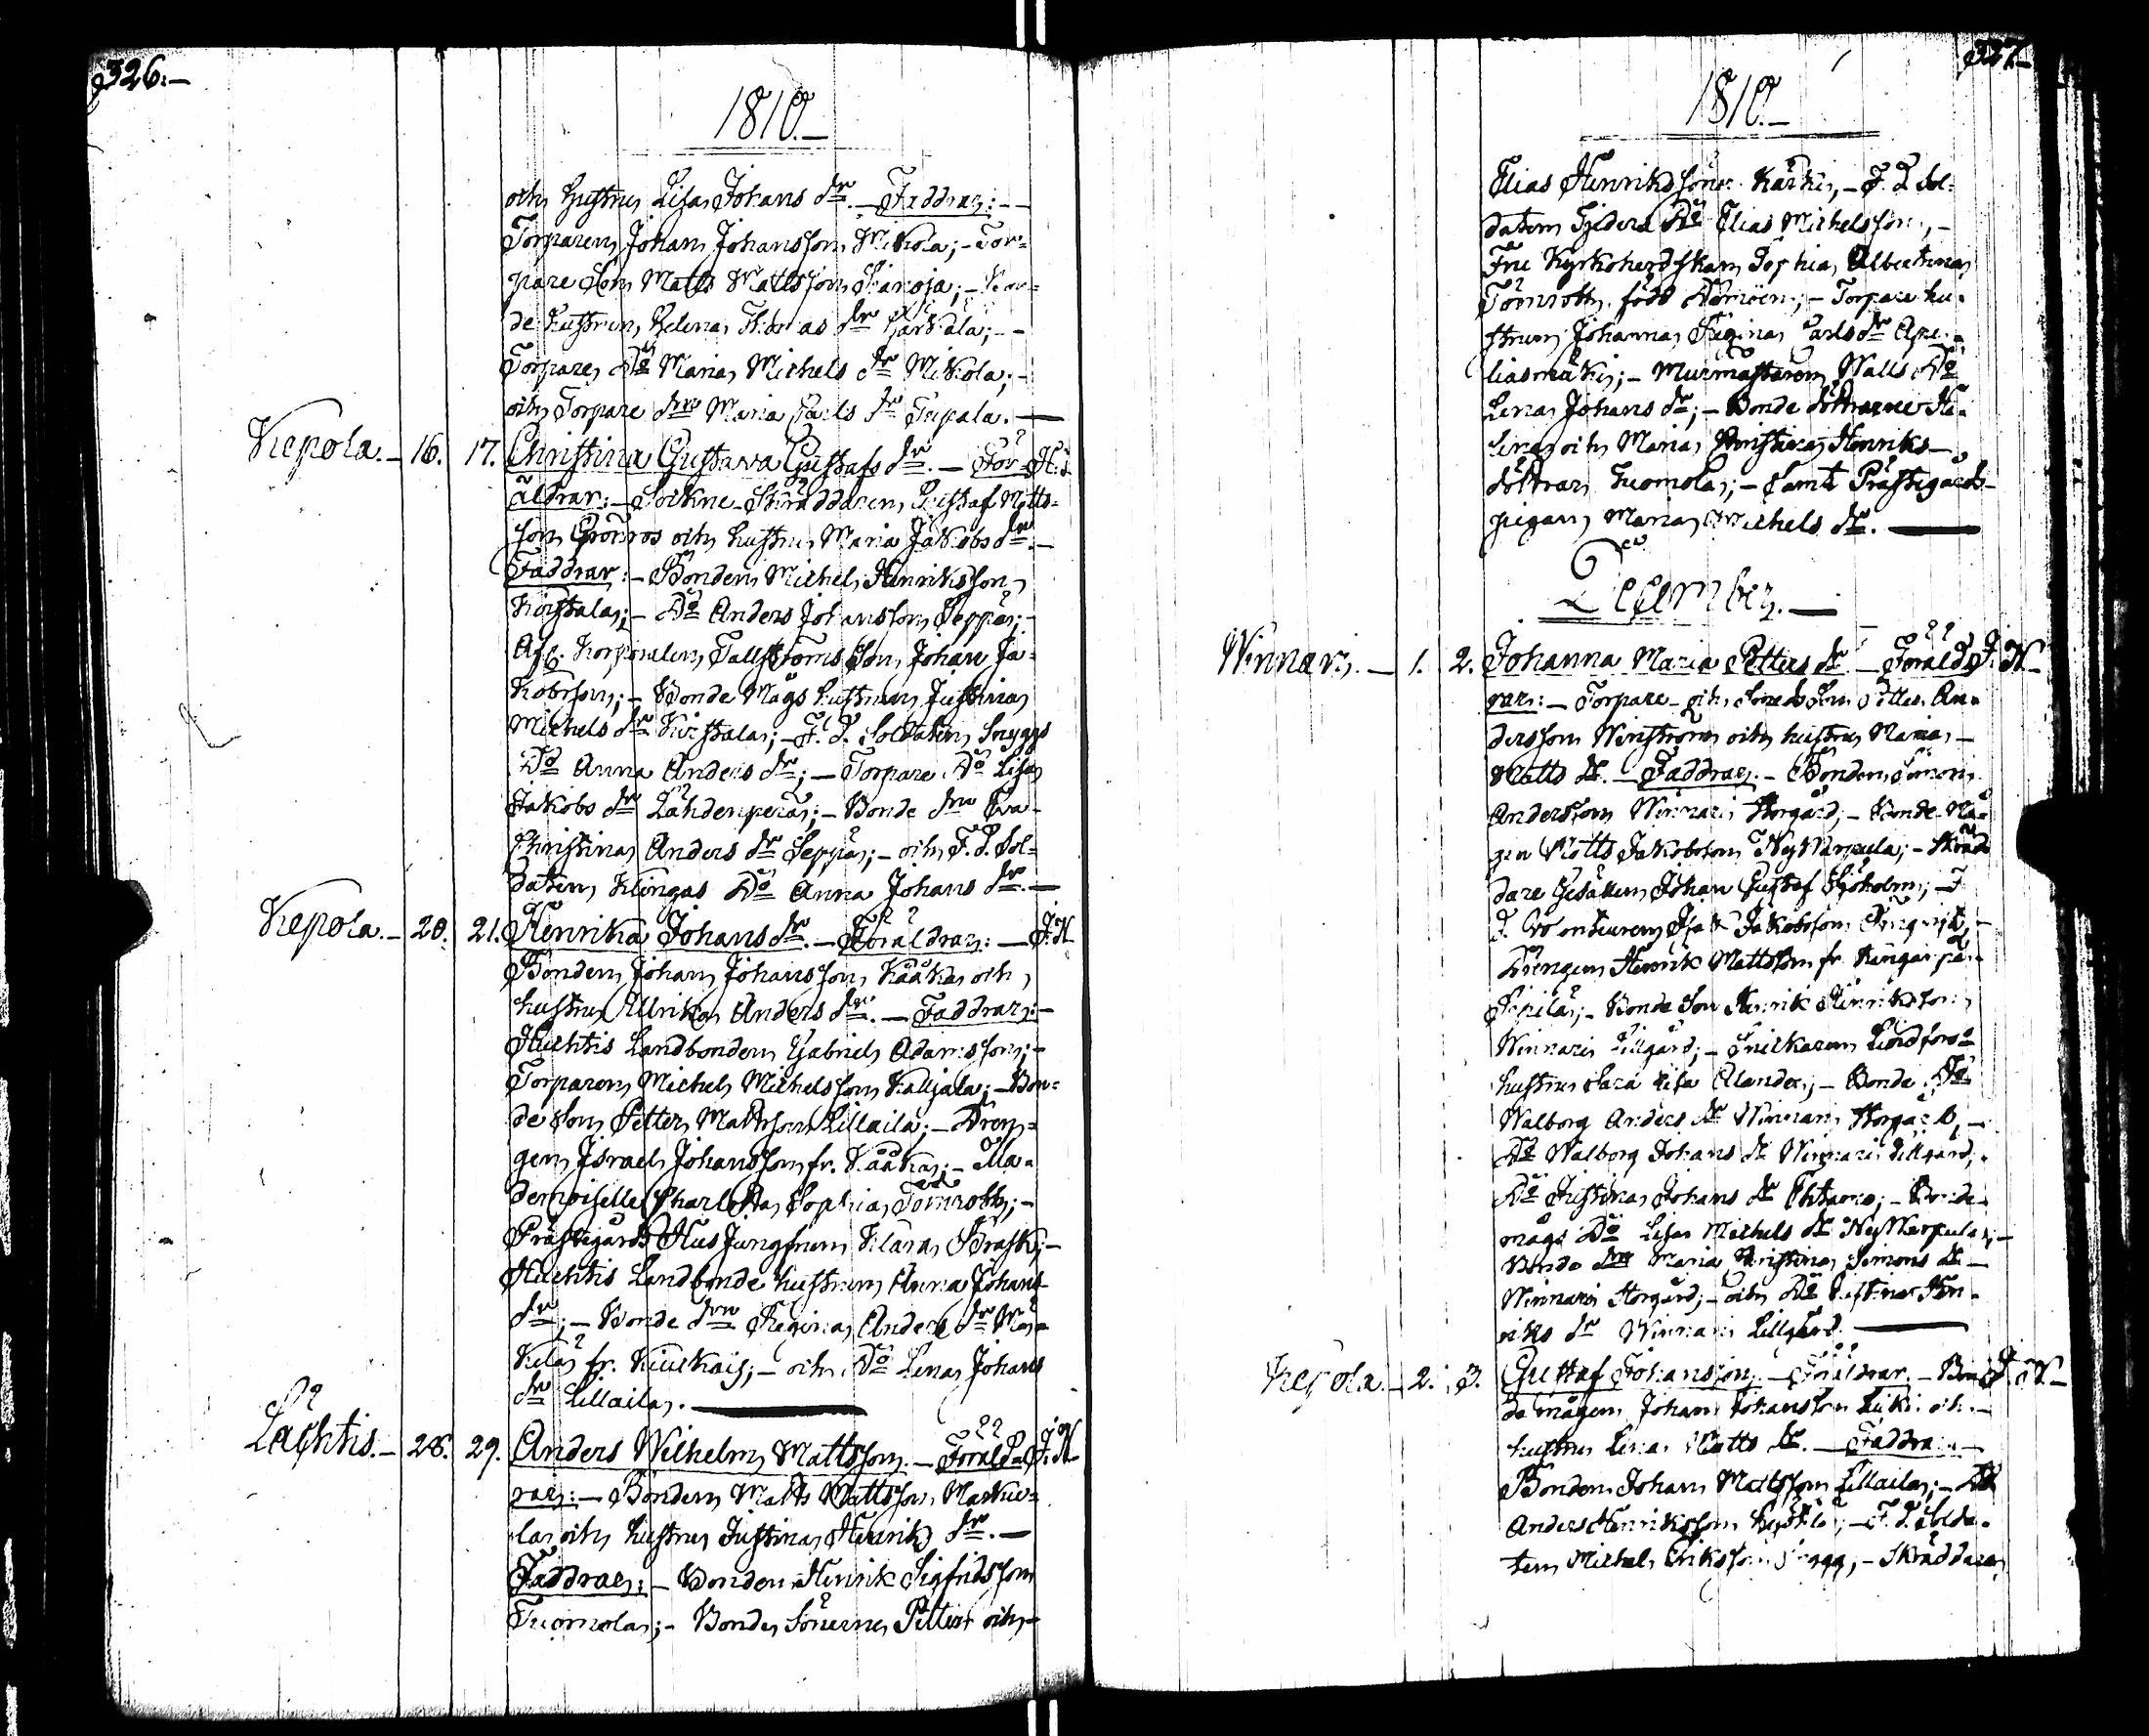 326.—
1810.—
och hustrun Lisa Johans dr. — Faddrar: —
Torparen Johan Johansson Mikola; — Tor=
pare Son Matts Mattsson Isänoja; —
de hustrun Helena Thomas dr Härkälä; —
Torpare Do Maria Michels dr Mikola; —
och Torpare dr Maria Carls dr Trepala. —
Kepola. — 16. 17. Christina Gustava Gustafs dr. — För=
äldrar: — Sockne-Skräddaren Gustaf Matts=
son Grönros och hustrun Maria Jakobs dr. —
Faddrar: — Bonden Michel Henriksson
Do Anders Johansson Seppä; —
Afsk. Korporalen Tallstroms Son Johan Ja=
kobsson; — Bonde Mågs hustrun Justina
Michels dr — F. D. Soldaten Snyggs
Do Anna Anders dr; — Torpare Do Lisa
Jakobs dr Lähdenperä; — Bonde drn Eva
Christina Anders dr Seppä; — och F. D. Sol=
daten Klingas Do Anna Johans dr. —
Kepola. — 20. 21. Henrika Johans dr. — Föräldrar: — J. N.
Bonden Johan Johansson Kååka och
hustrun Ulrika Anders dr. — Faddrar: —
Huhtis Landbonden Gabriel Adamsson; —
Torparen Michel Michelsson Kalljala; — Bon=
de Son Petter Mattsson Lillaila; — Dren=
gen Israel Johansson fr. Kååka; — Ma=
demoiselle Charlotta Sophia Törnroth; —
Prästegårds Hus Jungfrun Klara Brask; —
Huhtis Landbonde hustrun Anna Johans
dr; — Bonde drn Regina Anders dr
kelä fr. Kiukais; — och Do Lena Johans
dr Lillaila. —
Lachtis. — 28. 29. Anders Wilhelm Mattsson. — Föräld= J. N.
rar: — Bonden Matts Mattsson Markku=
la och hustrun Justina Henriks dr. —
Faddrar: — Bonden Henrik Sigfridsson
Tuomola; — Bonde Sönerne Petter och —
327.—
1810.—
Elias Henriks söner Karki, — F. D. Sol=
daten Do Elias Michelsson, —
Fru Kyrkoherdskan Sophia Albertina
Törnroth, född — Torpare hu=
strun Johanna Regina Carls dr
liasmäki; — Murmästaren Walls Do
Lena Johans dr; — Bonde döttrarne He=
lena och Maria Christina Henriks —
döttrar Tuomola; — Samt Prästegårds-
pigan Maria Michels dr. —
December. —
Winnari. — 1. 2. Johanna Maria Petters dr — Föräld= J. N.
rar: — Torpare och Smeds Son Petter An=
dersson Winström och hustrun Maria —
Matts dr. — Faddrar. — Bonden Simon
Andersson Winnari Storgård; — Bonde Må=
gen Matts Jakobsson NyWarpula; — Skräd=
dare Gesällen Johan Gustaf Sjöholm; — F.
D. Isak Jakobsson
Drengen Henrik Mattsson fr.
Pipila; — Bonde Son Henrik Henriksson
Winnari Lillgård; — Snikaren Lindfors
hustrun Sara Lisa Alander; — Bonde Do
Walborg Anders dr Winnari Storgård, —
Do Walborg Johans dr Winnari Lillgård; —
Do Justina Johans dr — Bonde
mågs Do Lisa Michels dr NyWarpula; —
Bonde drn Maria Christina Simons dr —
Winnari Storgård; — och Do Justina Hen=
riks dr Winnari Lillgård. —
Kepola — 2. 3. Gustaf Johansson. — Föräldrar. — Bon= J. N.
de mågen Johan Johansson och —
hustrun Lena Matts dr. — Faddrar: —
Bonden Johan Mattsson Lillaila; — Do
Anders Henriksson — F. D. Solda=
ten Michel Eriksson Snygg, — Skräddaren